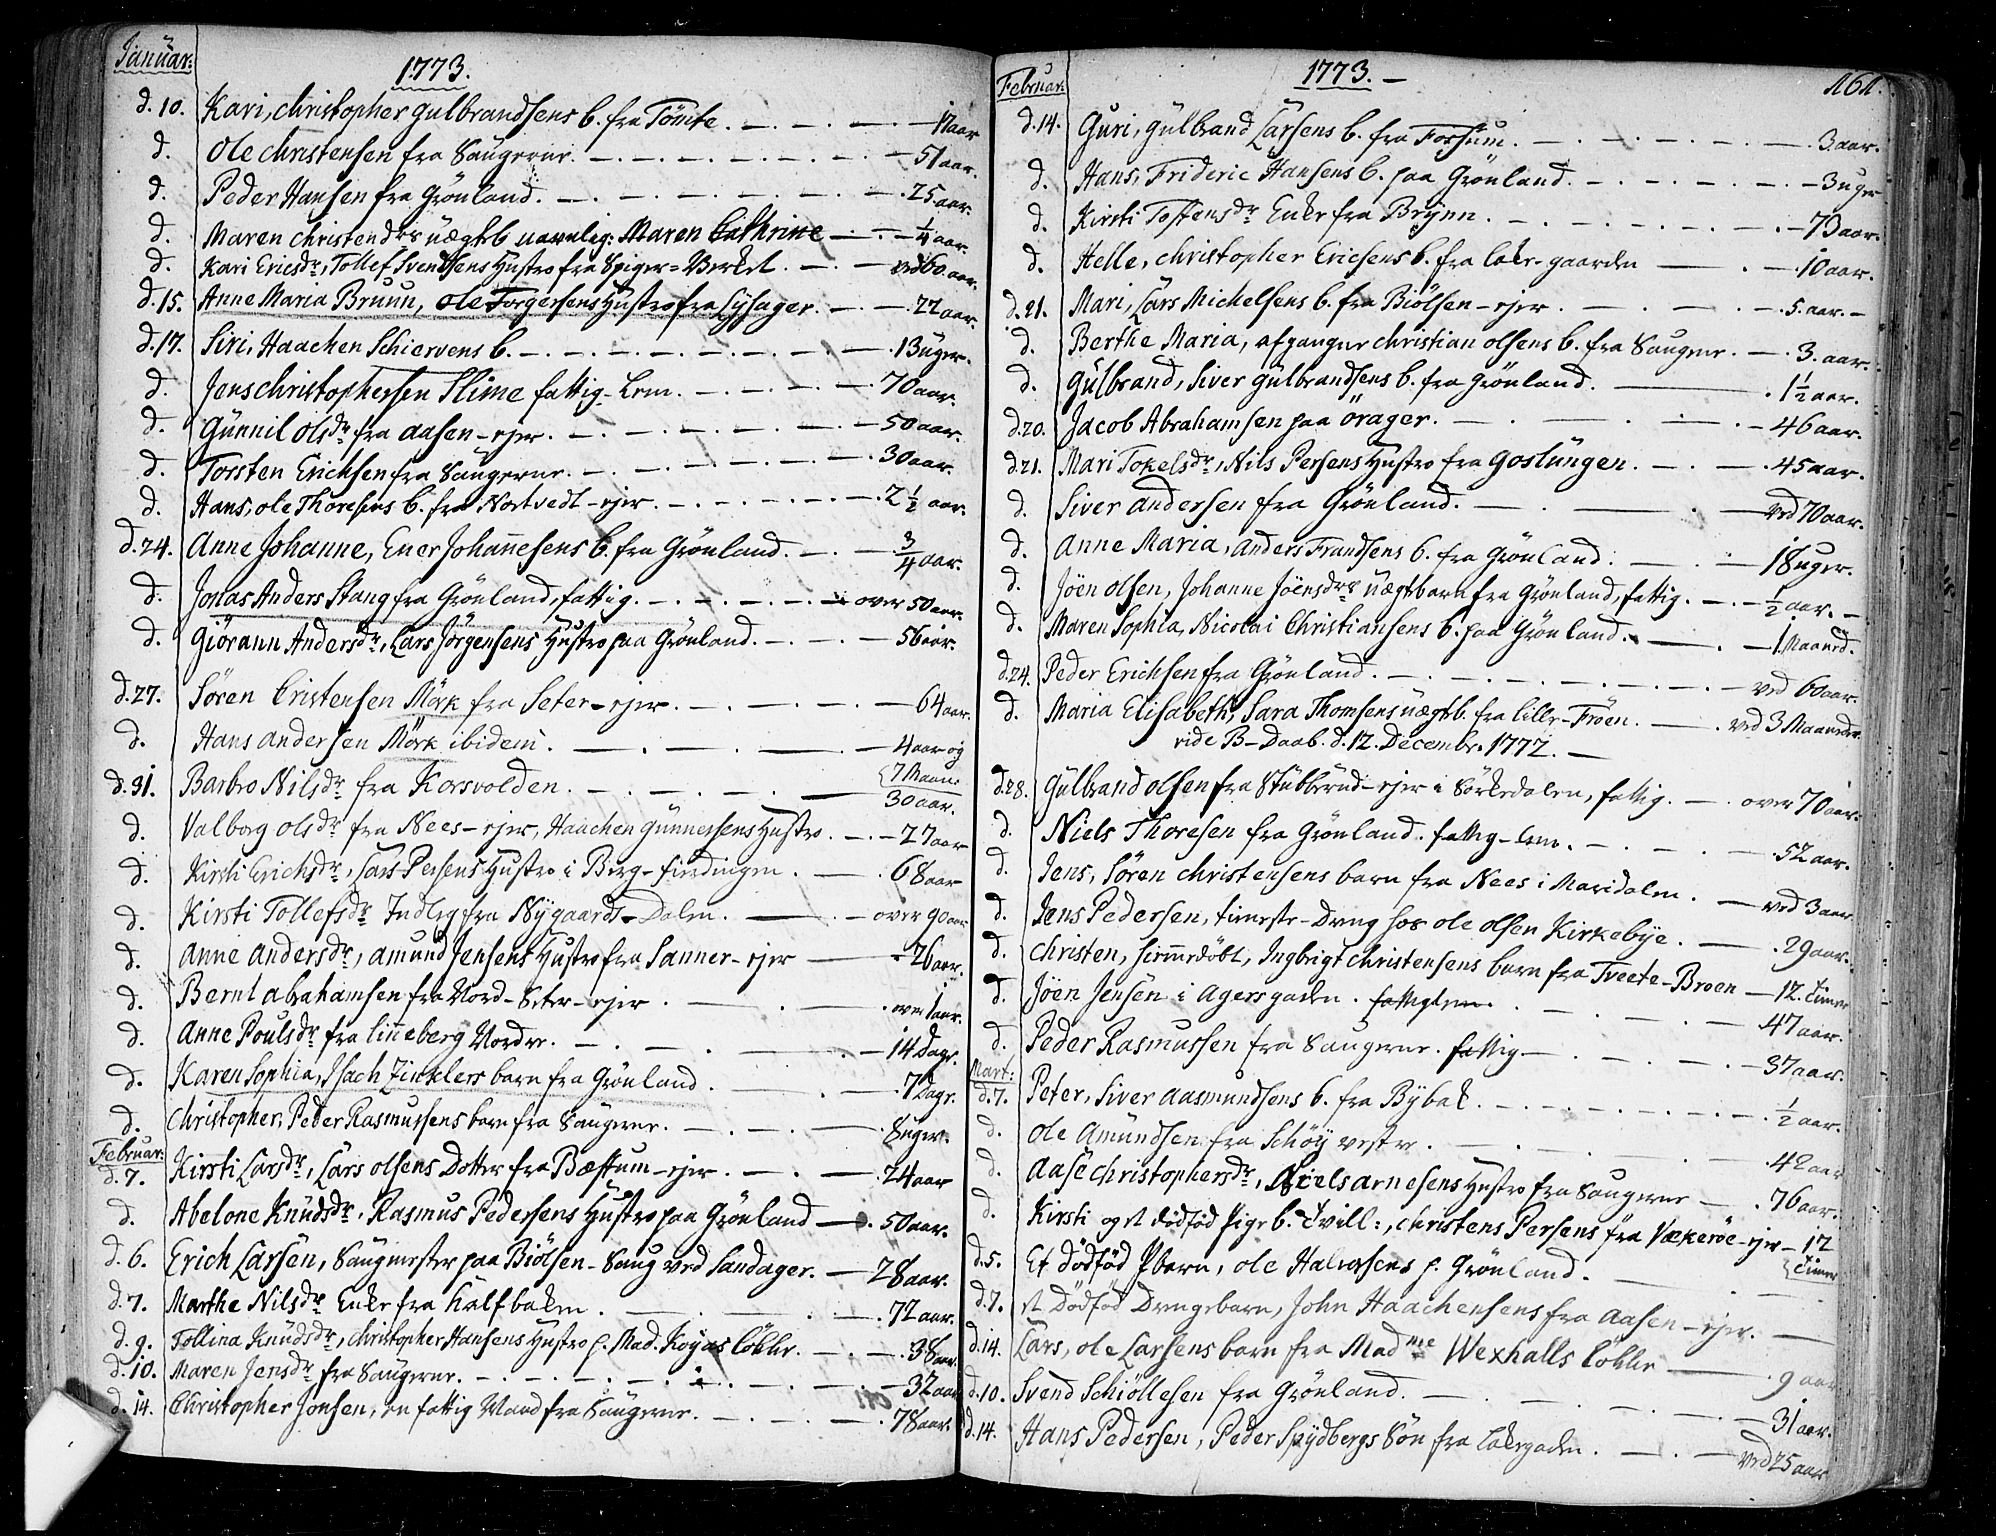 Januar:
1773.
d. 10. Kari, Christopher Gulbrandsens b. fra Tömte. 17 aar
d. Ole Christensen fra Saugerne. 51 aar.
d. Peder Hansen fra Grönland. 25 aar.
d. Maren Christendrs uægteb navnlig: Maren Cathrine 1/4 aar.
d. Kari Ericsdr, Tollef Svendsens Hustro fra Spiger=Verket. ved 60 aar.
d. 15. Anne Maria Bruun, Ole Torgersens Hustro fra Lysager. 22 aar.
d. 17. Siri, Haachen Schiervens b. 13 uger.
d. Jens Christophersen Slime fattig-Lem. 70 aar.
d. Gunnil Olsdr fra Aasen-ejer. 50 aar.
d. Torsten Erichsen fra Saugerne. 30 aar.
d. Hans, Ole Thoresens b. fra Nortvedt-ejer. 2 1/2 aar.
d. 24. Anne Johanne, Ener Johannesens b. fra Grönland. 3/4 aar.
d. Jonas Anders Stang fra Grönland, fattig. over 50 aar.
d. Giörann Andersdr, Lars Jörgensens Hustro paa Grönland. 56 aar.
d. 27. Sören Cristensen Mörk fra Seter-ejer. 64 aar.
d. Hans Andersen Mörk ibidem. 4 aar og
7 Maan:
d. 31. Barbro Nilsdr fra Korsvolden. 30 aar.
d. Valborg Olsdr fra Nees-ejer, Haachen Gunnersens Hustro. 27 aar
d. Kirsti Erichsdr, Lars Persens Hustro i Berg-fierdingen. 68 aar
d. Kirsti Tollefsdr Indleg fra Nygaards-Dalen. over 90 aar
d. Anne Andersdr, Amund Jensens Hustro fra Sanner-ejer 26 aar.
d. Bernt Abrahamsen fra Nord-Seter-ejer. over 1 aar.
d. Anne Poulsdr fra Linneberg Nordre. 14 Dage.
d. Karen Sophia, Isach Zinklers barn fra Grönland. 7 Dage.
d. Christopher, Peder Rasmussens barn fra Saugerne. 8 uger.
Februar:
d. 7. Kirsti Larsdr, Lars Olsens Dotter fra Bæstum-ejer. 24 aar
d. Abelone Knudsdr, Rasmus Pedersens Hustro paa Grönland 50 aar.
d. 6. Erich Larsen, Saugmester paa Biölsen-Saug ved Sandager. 28 aar.
d. 7. Marthe Nilsdr Enke fra Kalfbaken. 72 aar.
d. 9. Tollina Knudsdr, Christopher Hansens Hustro p. Mad. Koyas lökke. 38 aar.
d. 10. Maren Jensdr fra Saugerne. 32 aar
d. 14. Christopher Jonsen, en fattig Mand fra Saugerne. 78 aar.
Februar:
1773.
161.
d. 14. Guri, Gulbrand Larsens b. fra Fossum. 3 aar.
d. Hans, Frideric Hansens b. paa Grönland. 3 uger
d. Kirsti Tostensdr Enke fra Brynn. 73 aar.
d. Helle, Christopher Ericsens b. fra Lake-gaarden 10 aar.
d. 21. Mari, Lars Michelsens b. fra Biölsen-ejer. 5. aar.
d. Berthe Maria, afgangne Christian Olsens b. fra Saugene. 3. aar.
d. Gulbrand, Siver Gulbrandsens b. fra Grönland. 1 1/2 aar.
d. 20. Jacob Abrahamsen paa Örager. 46 aar.
d. 21. Mari Tokelsdr, Nils Persens Hustro fra Goslungen. 45 aar.
d. Siver Andersen fra Grönland. ved 70 aar.
d. Anne Maria, Anders Frandsens b. fra Grönland. 18 uger.
d. Jöen Olsen, Johanne Jöensdrs uægte barn fra Grönland, fattig. 1/2 aar.
d. Maren Sophia, Nicolai Christiansens b. paa Grönland. 1 Maaned.
d. 24. Peder Erichsen fra Grönland. ved 60 aar.
d. Maria Elisabeth, Sara Thomsens uægteb. fra Lille-Fröen. ved 3 Maaneder.
vide B-Daab. d. 12. Decembr. 1772.
d. 28. Gulbrand Olsen fra Stubberud-ejer i Sörkedalen, fattig. over 70 aar.
d. Niels Thoresen fra Grönland. fattig-lem. 52 aar.
d. Jens, Sören Christensens barn fra Nees i Maridalen. ved 3 aar
d. Jens Pedersen, tieneste-Dreng hos Ole Olsen Kirkebye. 29 aar.
d. Christen, hiemmedöbt, Ingbrigt Christensens barn fra Tveete-Broen 12. timer
d. Jöen Jensen i Agersgaden. fattiglem. 47 aar.
d. Peder Rasmussen fra Saugerne. fattig 37 aar.
Mart:
d. 7. Peter, Siver Aasmundsons b. fra Bybak. 1/2 aar.
d. Ole Amundsen fra Schöy vestre. 42 aar
d. Aase Christophersdr, Niels Arnesens Hustro fra Saugerne 76 aar.
d. Kirsti og et dödfod Pige b. Tvill:, Christens Persens fra Vækeröe-ejer 12
timer
d. 5. Et Dödföd P barn, Ole Halvorsens p. Grönland.
d. 7. et Dödföd Drengebarn, John Haachensens fra Aasen-ejer.
d. 14. Lars, Ole Larsens barn fra Madme Wexhalls Lökke 9 aar
d. 10. Svend Schiöllesen fra Grönland. 31 aar.
d. 14. Hans Pedersen, Peder Spydbergs Sön fra Lakegaden. ved 25 aar